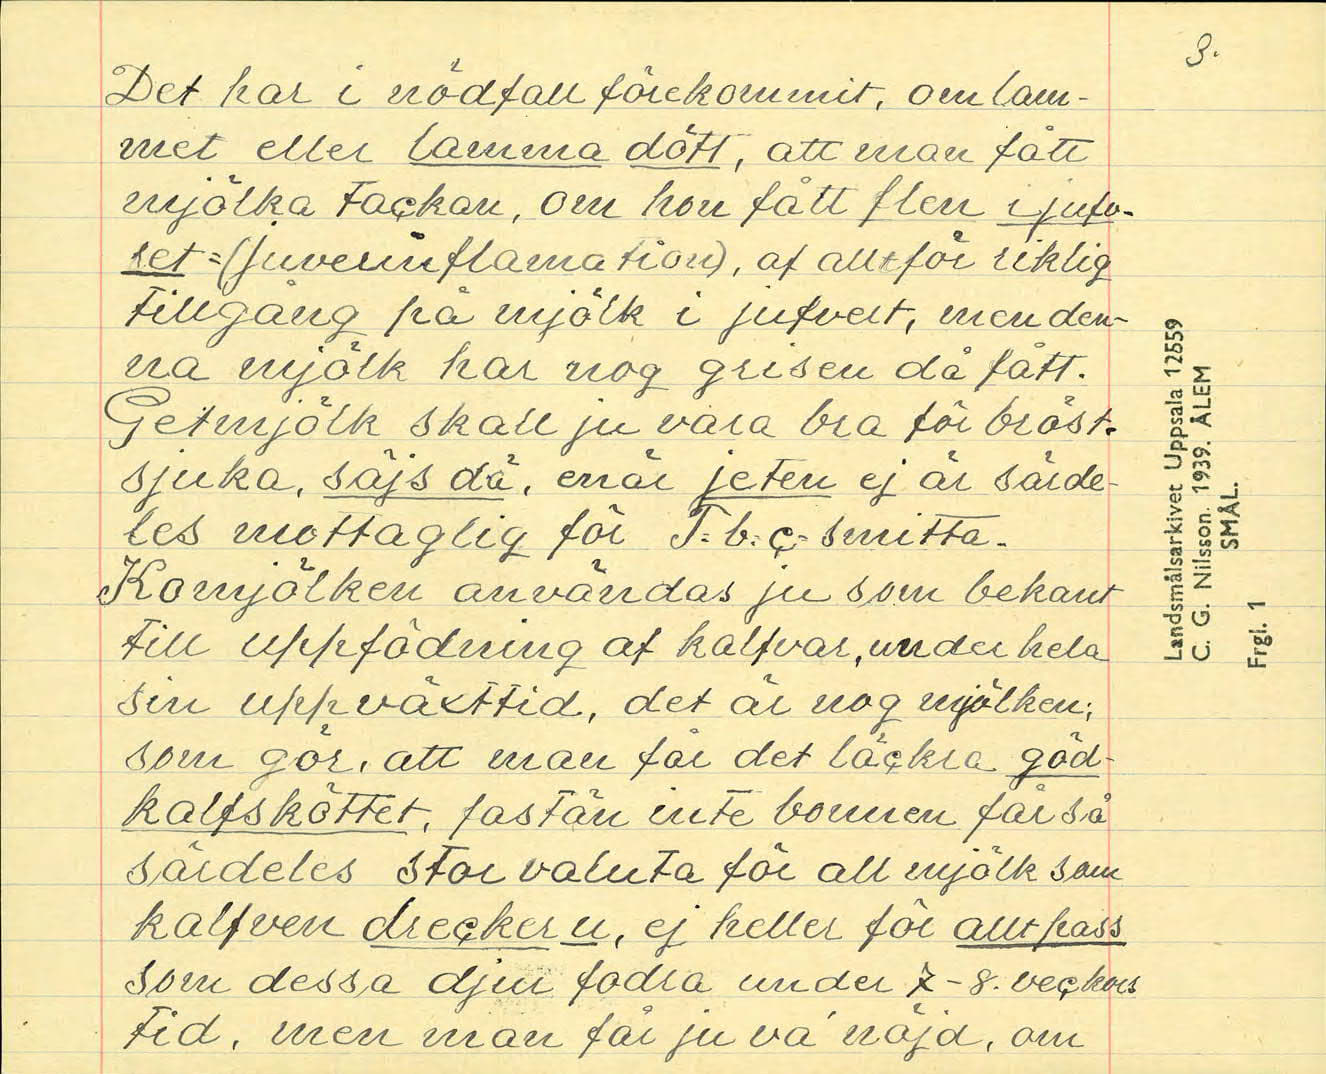 3.
Det har i nödfall förekommit, om lam-
met eller lamma dött, att man fått
mjölka tackan, om hon fått flen i jufv-
ret = (juverinflamation), af alltför riklig
tillgång på mjölk i jufvert, men den-
na mjölk har nog grisen då fått.
Getmjölk skall ju vara bra för bröst-
sjuka, säjs dä, enär jeten ej är särde-
les mottaglig för T.b.c. smitta.
Komjölken användas ju som bekant
till uppfödning af kalfvar, under hela
sin uppväxttid, det är nog mjölken,
som gör, att man får det läckra göd-
kalfsköttet, fastän inte bonnen får så
särdeles stor valuta för all mjölk som
kalfven drecker u, ej heller för allt pass
som dessa djur fodra under 7-8. veckors
tid, men man får ju va' nöjd, om
Landsmålsarkivet Uppsala 12559
C. G. Nilsson. 1939. ÅLEM
SMÅL.
Frgl. 1